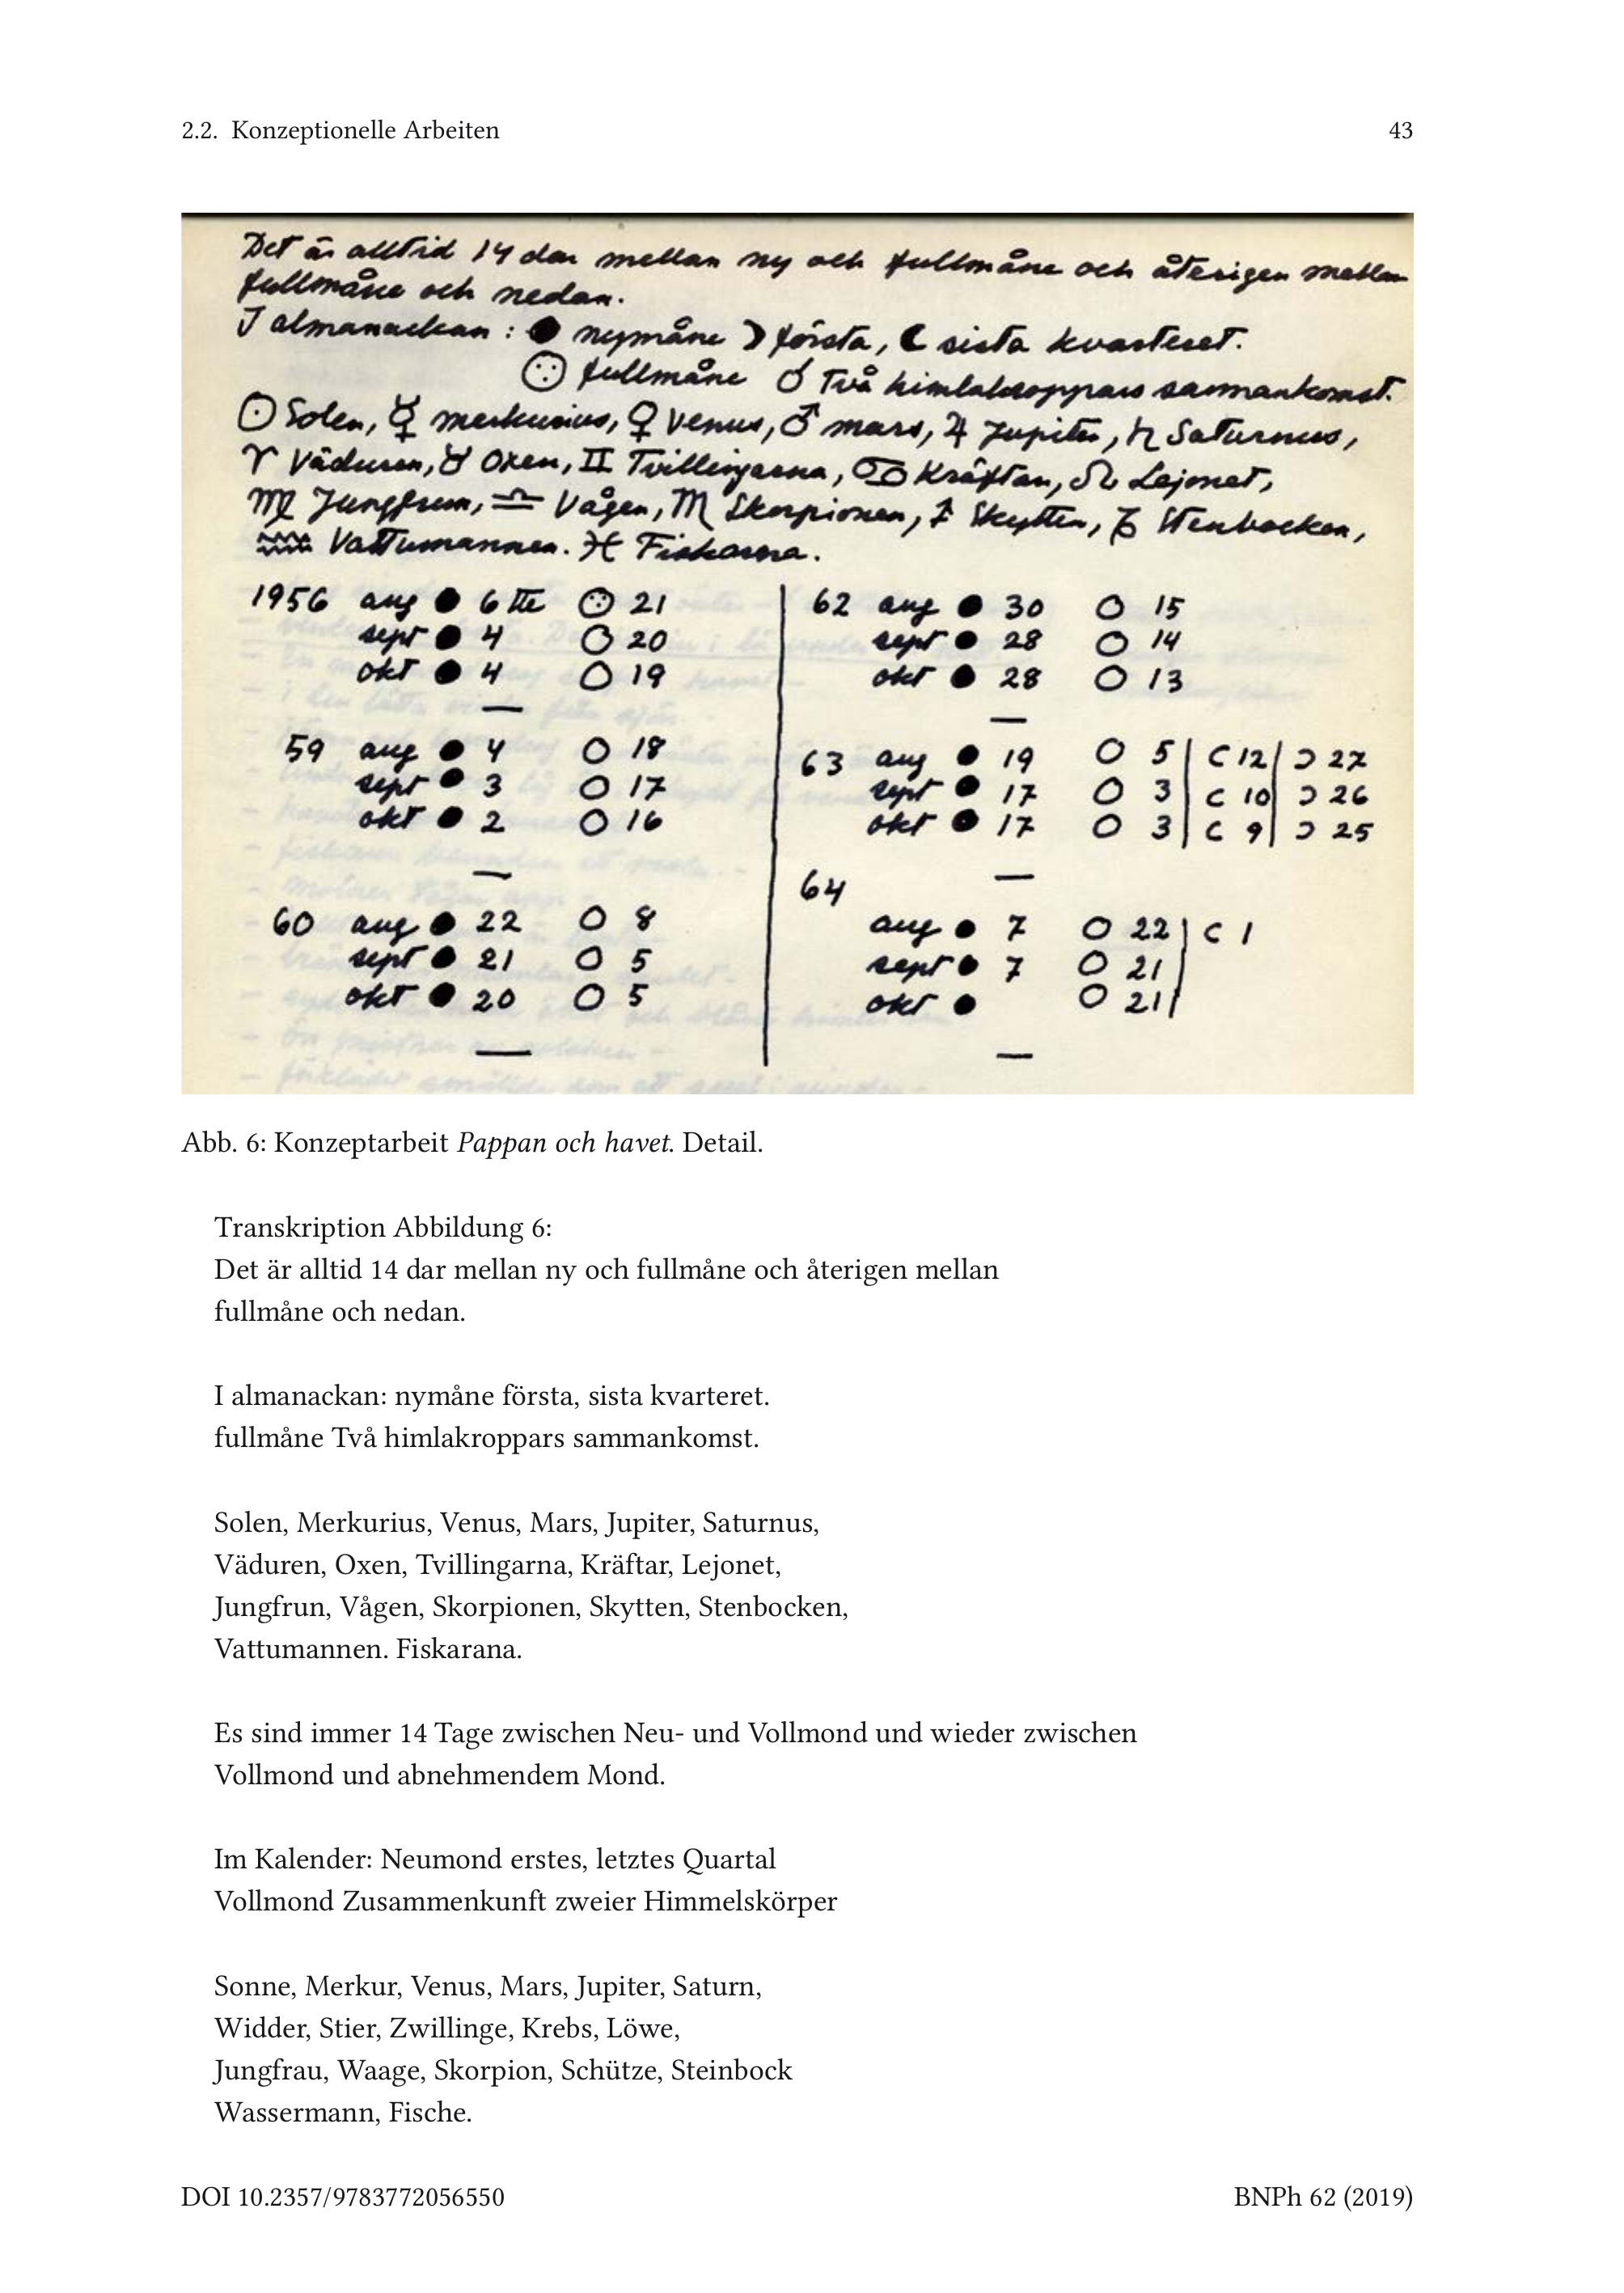 2.2. Konzeptionelle Arbeiten 43
Det är alltid 14 dar mellan ny och fullmåne och återigen mellan
fullmåne och nedan.
I almanackan: ● nymåne ☽ första, ☾ sista kvarteret.
fullmåne ☌ Två himlakroppars sammankomst.
☉ Solen, ☿ merkurius, ♀ Venus, ♂ mars, ♃ Jupiter, ♄ Saturnus,
♈ Väduren, ♉ Oxen, ♊ Tvillingarna, ♋ Kräftan, ♌ Lejonet,
♍ Jungfrun, ♎ Vågen, ♏ Skorpionen, ♐ Skytten, ♑ Stenbocken,
♒ Vattumannen. ♓ Fiskarna.
1956 aug ● 6 tte ○ 21
sept ● 4 ○ 20
okt ● 4 ○ 19
—
59 aug ● 4 ○ 18
sept ● 3 ○ 17
okt ● 2 ○ 16
—
60 aug ● 22 ○ 8
sept ● 21 ○ 5
okt ● 20 ○ 5
—
62 aug ● 30 ○ 15
sept ● 28 ○ 14
okt ● 28 ○ 13
—
63 aug ● 19 ○ 5 | ☾ 12 | ☽ 27
sept ● 17 ○ 3 | ☾ 10 | ☽ 26
okt ● 17 ○ 3 | ☾ 9 | ☽ 25
—
64
aug ● 7 ○ 22 | ☾ 1
sept ● 7 ○ 21 |
okt ● ○ 21 |
—
Abb. 6: Konzeptarbeit Pappan och havet. Detail.
Transkription Abbildung 6:
Det är alltid 14 dar mellan ny och fullmåne och återigen mellan
fullmåne och nedan.
I almanackan: nymåne första, sista kvarteret.
fullmåne Två himlakroppars sammankomst.
Solen, Merkurius, Venus, Mars, Jupiter, Saturnus,
Väduren, Oxen, Tvillingarna, Kräftar, Lejonet,
Jungfrun, Vågen, Skorpionen, Skytten, Stenbocken,
Vattumannen. Fiskarana.
Es sind immer 14 Tage zwischen Neu- und Vollmond und wieder zwischen
Vollmond und abnehmendem Mond.
Im Kalender: Neumond erstes, letztes Quartal
Vollmond Zusammenkunft zweier Himmelskörper
Sonne, Merkur, Venus, Mars, Jupiter, Saturn,
Widder, Stier, Zwillinge, Krebs, Löwe,
Jungfrau, Waage, Skorpion, Schütze, Steinbock
Wassermann, Fische.
DOI 10.2357/9783772056550 BNPh 62 (2019)